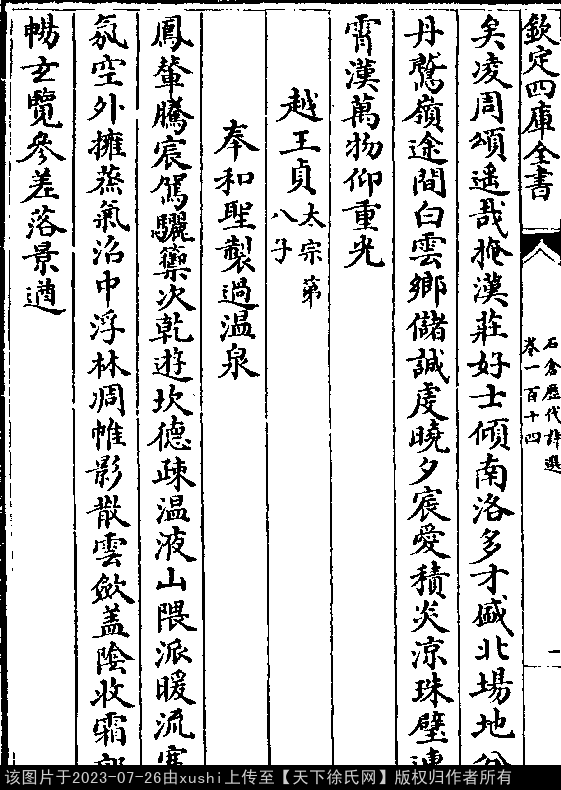 欽定四庫全書
石倉歴代詩選
卷一百十四
一
矣凌周頌遥哉掩漢莊好士傾南洛多才盛北場地
丹鷲嶺途間白雲鄉儲誠虔曉夕宸愛積炎涼珠璧連
霄漢萬物仰重光
越王貞太宗第八子
奉和聖製過温泉
鳳輦騰宸駕驪籞次乾遊坎德疎温液山隈派暖流寒
氛空外擁蒸氣沿中浮林凋帷影散雲歛盖隂收霜
暢玄覽參差落景遒
该图片于2023-07-26由xushi上传至【天下徐氏网】版权归作者所有